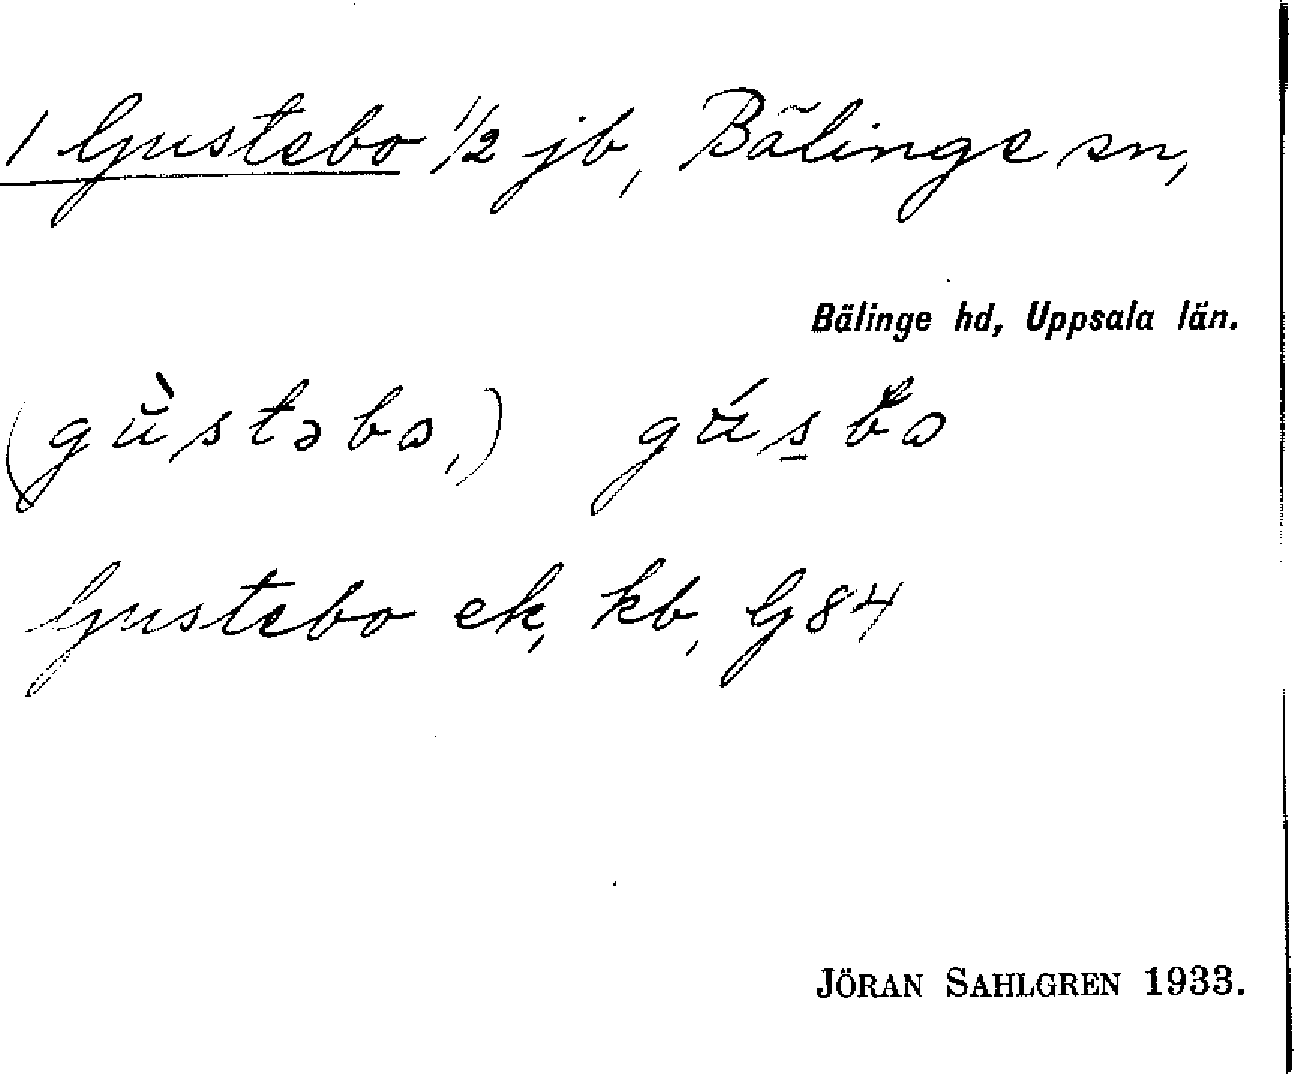 1 Gustebo 1/2 jb, Bälinge sn,
Bälinge hd, Uppsala län.
(gùstəbo,) gús̲bo
Gustebo ek, kb, G84
JÖRAN SAHLGREN 1933.